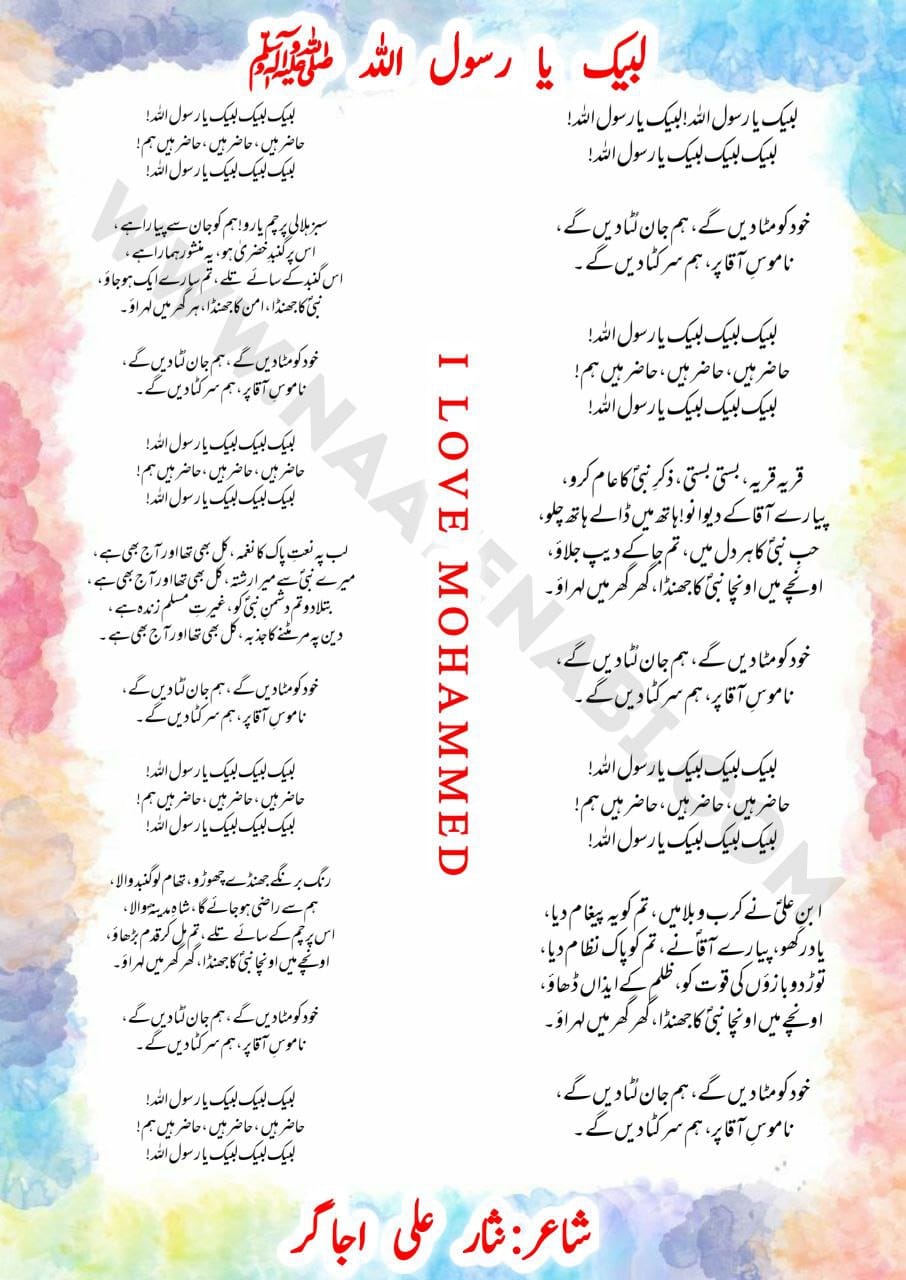 لبیک یا رسول اللہ ﷺ
لبیک یا رسول اللہ! لبیک یا رسول اللہ!
لبیک لبیک لبیک یا رسول اللہ!
خود کو مٹا دیں گے، ہم جان لُٹا دیں گے،
ناموسِ آقا پر، ہم سر کٹا دیں گے۔
لبیک لبیک لبیک یا رسول اللہ!
حاضر ہیں، حاضر ہیں، حاضر ہیں ہم!
لبیک لبیک لبیک یا رسول اللہ!
قریہ قریہ، بستی بستی، ذکرِ نبیؐ کا عام کرو،
پیارے آقا کے دیوانو! ہاتھ میں ڈالے ہاتھ چلو،
حبِ نبیؐ کا ہر دل میں، تم جا کے دیپ جلاؤ،
اونچے میں اونچا نبیؐ کا جھنڈا، گھر گھر میں لہراؤ۔
خود کو مٹا دیں گے، ہم جان لُٹا دیں گے،
ناموسِ آقا پر، ہم سر کٹا دیں گے۔
لبیک لبیک لبیک یا رسول اللہ!
حاضر ہیں، حاضر ہیں، حاضر ہیں ہم!
لبیک لبیک لبیک یا رسول اللہ!
ابنِ علیؑ نے کرب و بلا میں، تم کو یہ پیغام دیا،
یاد رکھو، پیارے آقاؐ نے، تم کو پاک نظام دیا،
توڑ دو بازؤں کی قوت کو، ظلم کے ایذاں ڈھاؤ،
اونچے میں اونچا نبیؐ کا جھنڈا، گھر گھر میں لہراؤ۔
خود کو مٹا دیں گے، ہم جان لُٹا دیں گے،
ناموسِ آقا پر، ہم سر کٹا دیں گے۔
I LOVE MOHAMMED
لبیک لبیک لبیک یا رسول اللہ!
حاضر ہیں، حاضر ہیں، حاضر ہیں ہم!
لبیک لبیک لبیک یا رسول اللہ!
سبز ہلالی پرچم یارو! ہم کو جان سے پیارا ہے،
اس پر گنبدِ خضریٰ ہو، یہ منشور ہمارا ہے،
اس گنبد کے سائے تلے، تم سارے ایک ہو جاؤ،
نبیؐ کا جھنڈا، امن کا جھنڈا، ہر گھر میں لہراؤ۔
خود کو مٹا دیں گے، ہم جان لٹا دیں گے،
ناموسِ آقا پر، ہم سر کٹا دیں گے۔
لبیک لبیک لبیک یا رسول اللہ!
حاضر ہیں، حاضر ہیں، حاضر ہیں ہم!
لبیک لبیک لبیک یا رسول اللہ!
لب پہ نعتِ پاک کا نغمہ، کل بھی تھا اور آج بھی ہے،
میرے نبیؐ سے میرا رشتہ، کل بھی تھا اور آج بھی ہے،
بتلا دو تم دشمنِ نبیؐ کو، غیرتِ مسلم زندہ ہے،
دین پہ مر مٹنے کا جذبہ، کل بھی تھا اور آج بھی ہے۔
خود کو مٹا دیں گے، ہم جان لٹا دیں گے،
ناموسِ آقا پر، ہم سر کٹا دیں گے۔
لبیک لبیک لبیک یا رسول اللہ!
حاضر ہیں، حاضر ہیں، حاضر ہیں ہم!
لبیک لبیک لبیک یا رسول اللہ!
رنگ برنگے جھنڈے چھوڑو، تھام لو گنبد والا،
ہم سے راضی ہو جائے گا، شاہِ مدینہ والا،
اس پرچم کے سائے تلے، تم مل کر قدم بڑھاؤ،
اونچے میں اونچا نبیؐ کا جھنڈا، گھر گھر میں لہراؤ۔
خود کو مٹا دیں گے، ہم جان لٹا دیں گے،
ناموسِ آقا پر، ہم سر کٹا دیں گے۔
لبیک لبیک لبیک یا رسول اللہ!
حاضر ہیں، حاضر ہیں، حاضر ہیں ہم!
لبیک لبیک لبیک یا رسول اللہ!
شاعر: نثار علی اجاگر